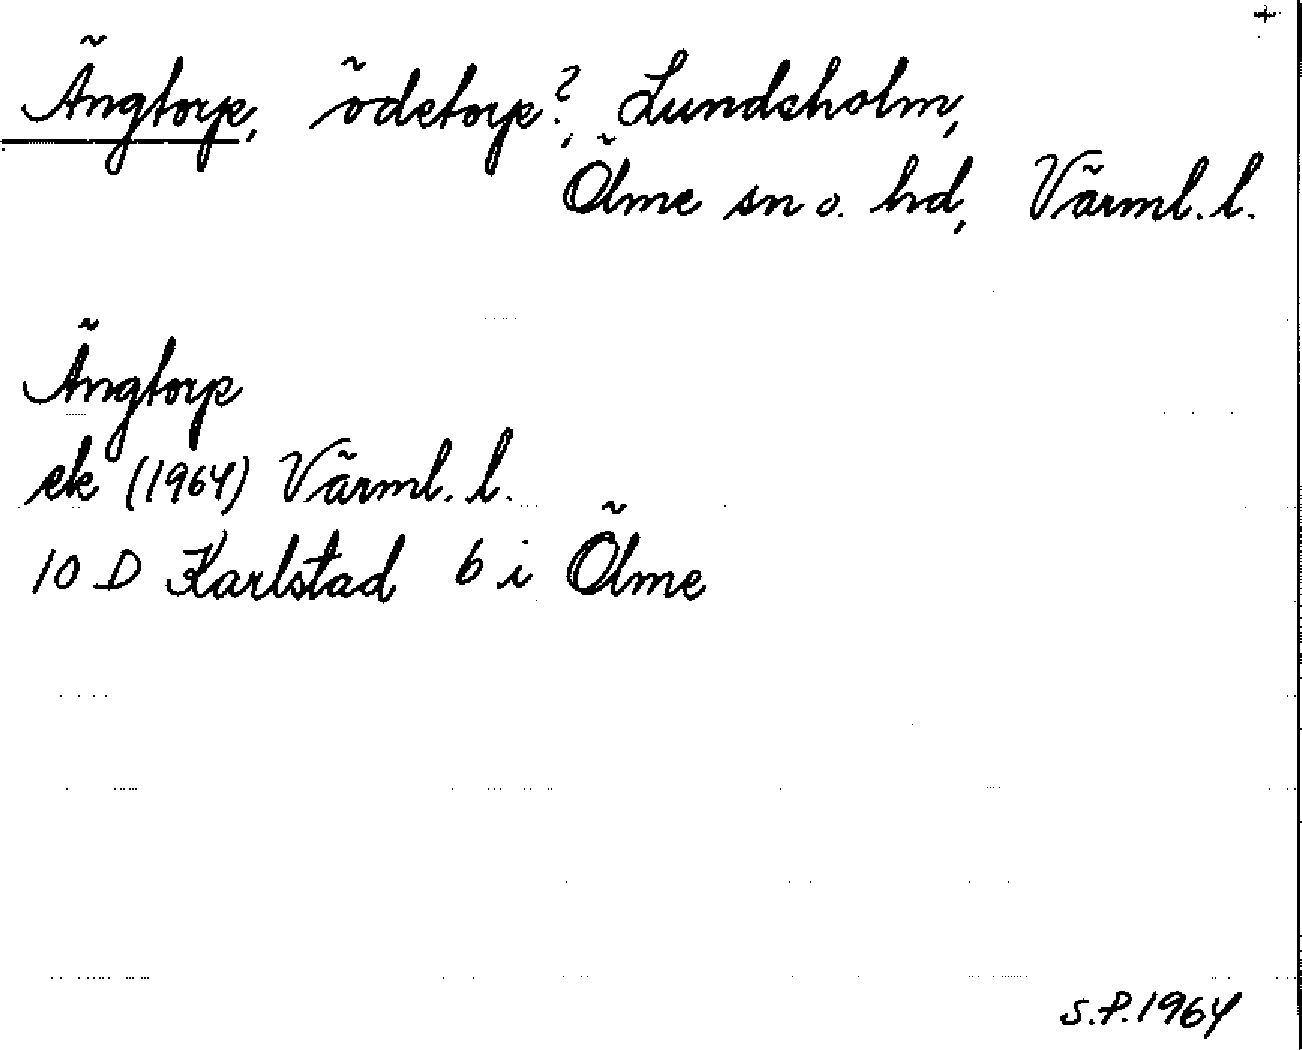 +
Ängtorp, ödetorp?, Lundsholm,
Ölme sn o. hd, Värml. l.
Ängtorp
ek (1964) Värml. l.
10 D Karlstad 6 i Ölme
S.P. 1964